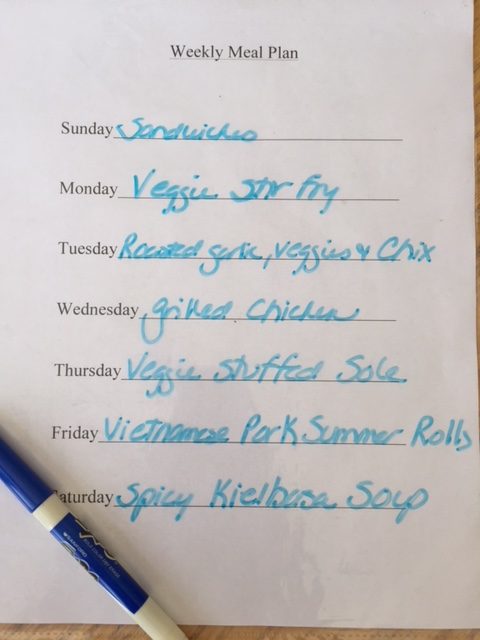 Weekly Meal Plan
Sunday Sandwiches
Monday Veggie Stir Fry
Tuesday Roasted garlic, veggies & Chix
Wednesday grilled Chicken
Thursday Veggie Stuffed Sole
Friday Vietnamese Pork Summer Rolls
Saturday Spicy Kielbasa Soup
EXPO